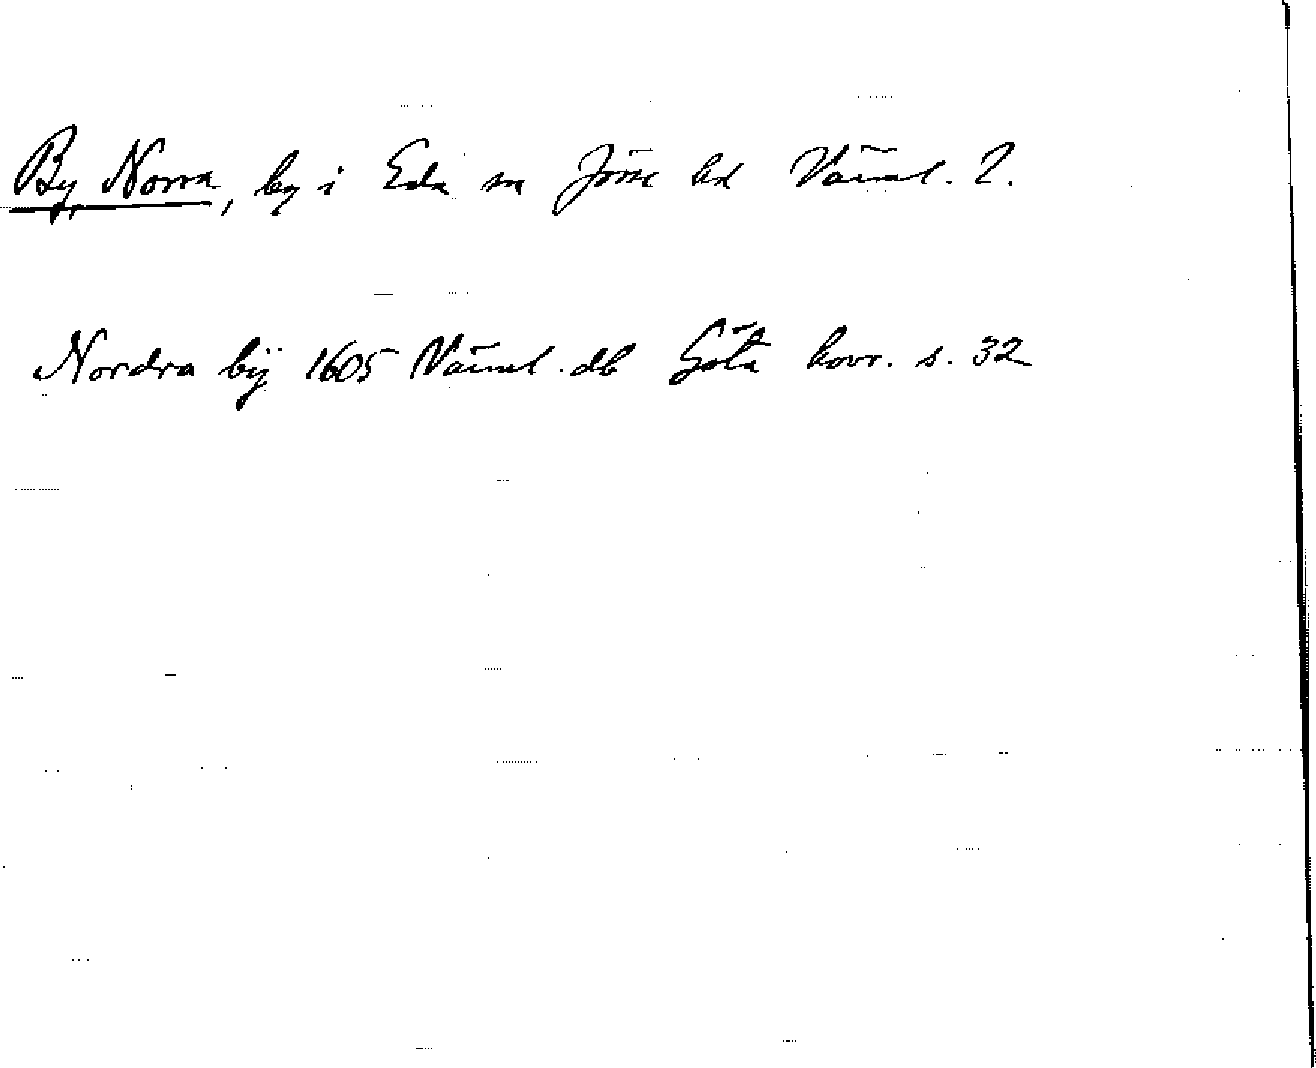 By, Norra, by i Eda sn Jösse hd Värml. l.
Nordra bÿ 1605 Värml. db Göta hovr. s. 32